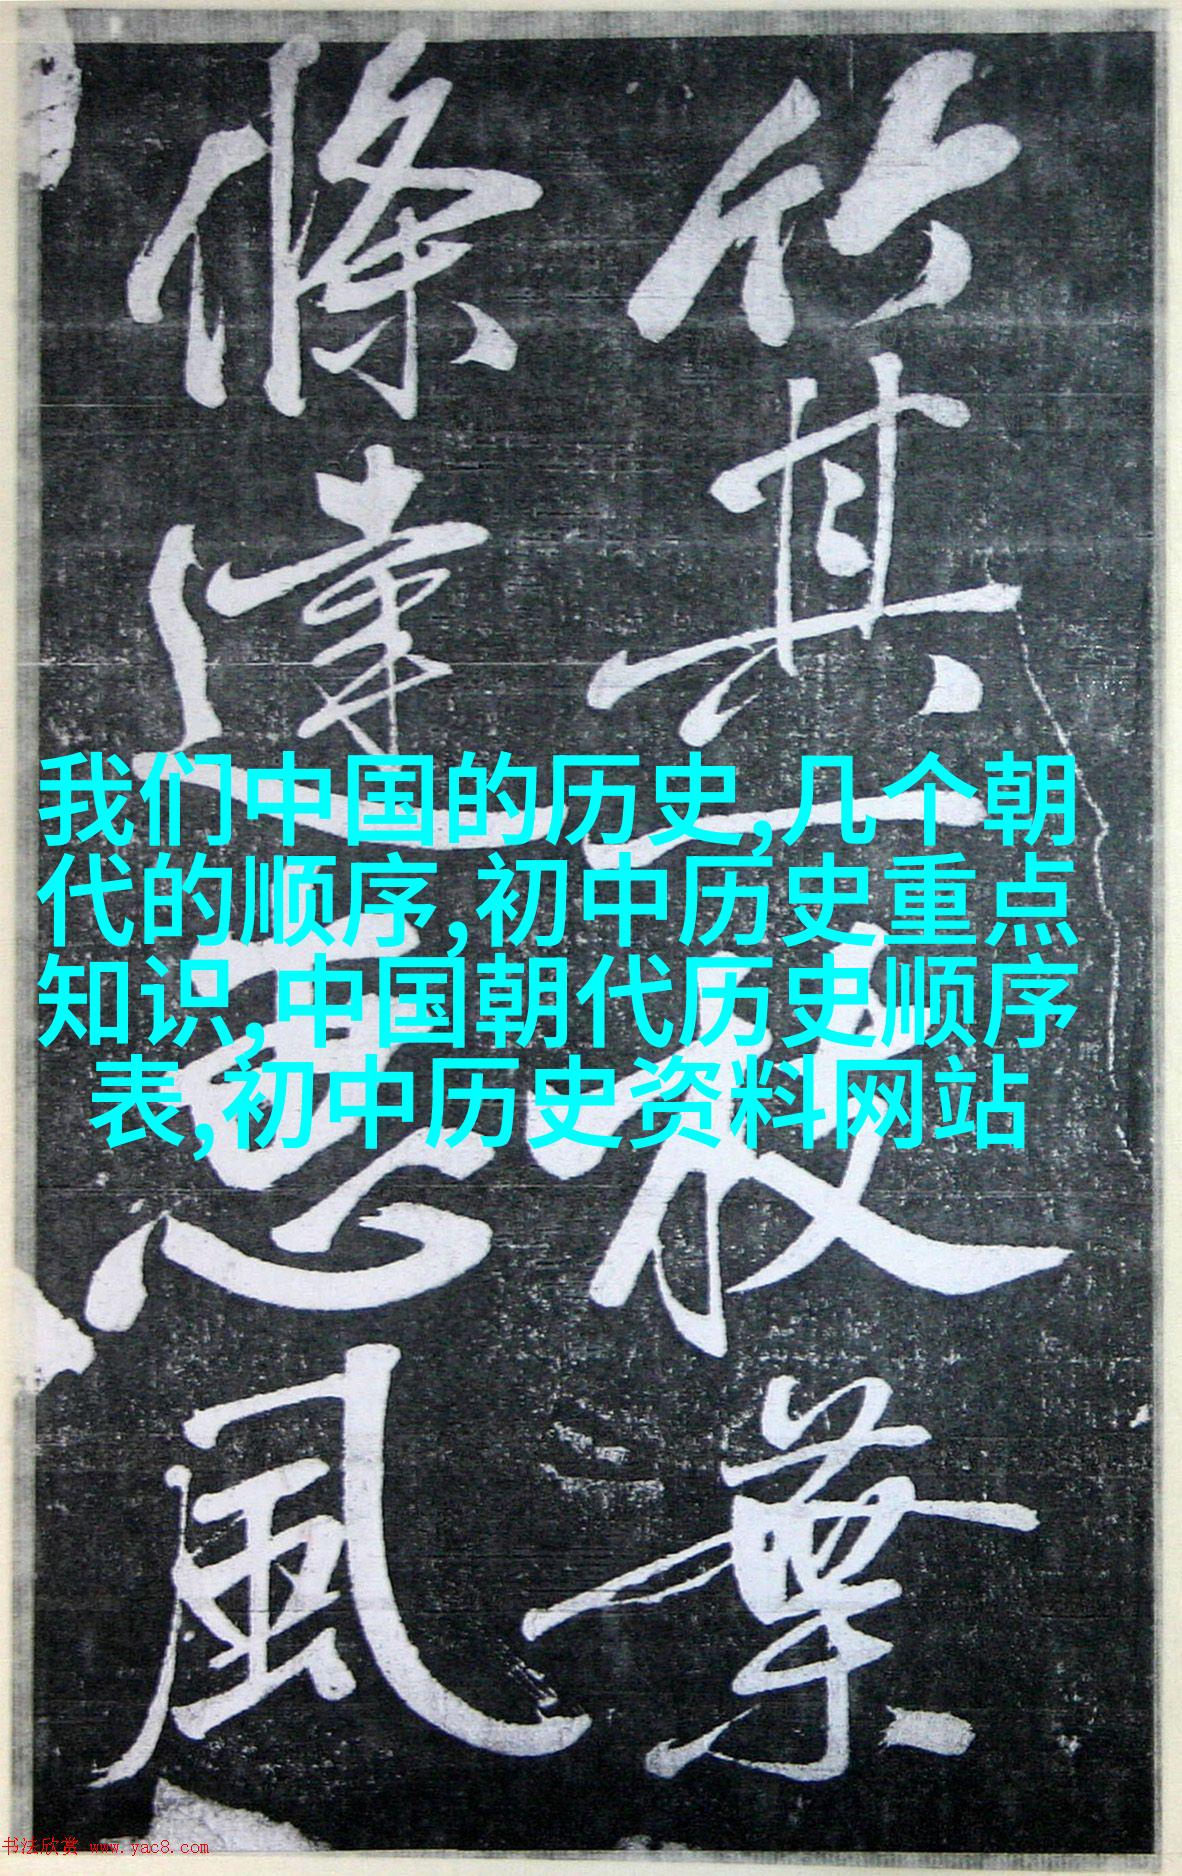 竹其枝葉
條達惠風
我们中国的历史,几个朝
代的顺序,初中历史重点
知识,中国朝代历史顺序
表,初中历史资料网站
书法欣赏 www.yac8.com